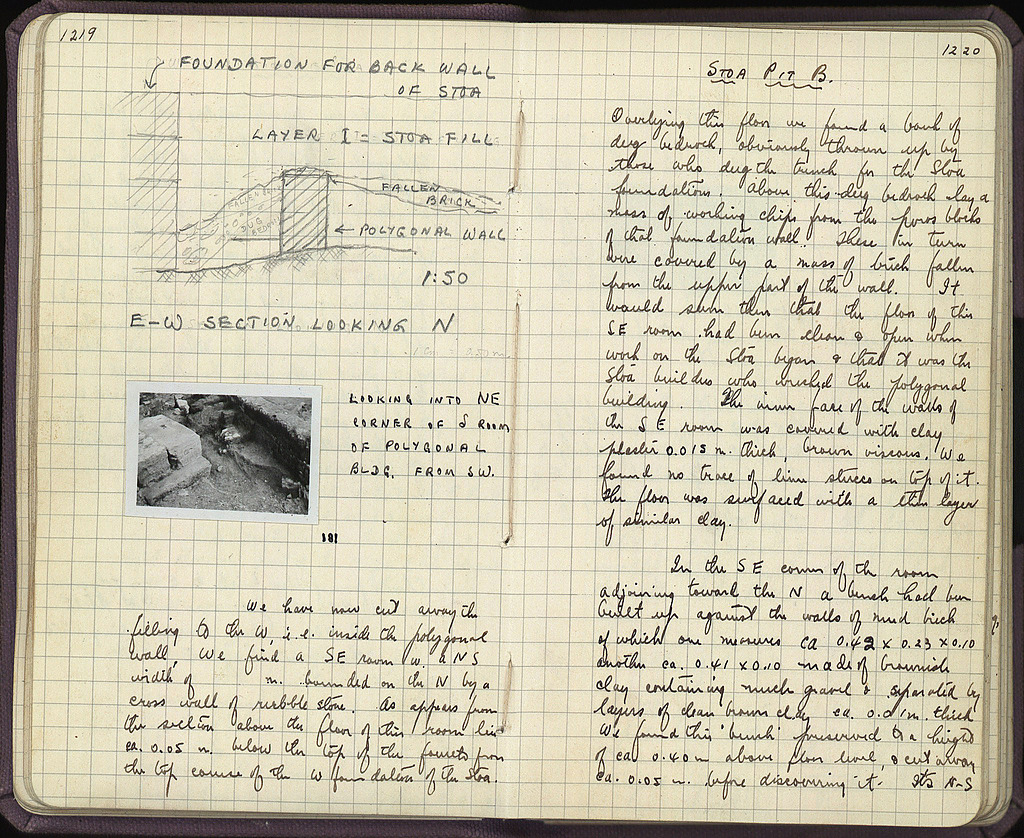 1219
FOUNDATION FOR BACK WALL
OF STOA
LAYER I = STOA FILL
FALLEN
BRICK
FALLEN BRICK
DUG
BEDROCK
← POLYGONAL WALL
1:50
E-W SECTION LOOKING N
LOOKING INTO NE
CORNER OF S ROOM
OF POLYGONAL
BLDG. FROM SW.
181
We have now cut away the
filling to the W, i.e. inside the polygonal
wall. We find a SE room w. a NS
width of m. bounded on the N by a
cross wall of rubble stone. As appears from
the section above the floor of this room lies
ca. 0.05 m. below the top of the fourth from
the top course of the W foundation of the Stoa.
1220
STOA PIT B.
Overlying this floor we found a bank of
dug bedrock, obviously thrown up by
those who dug the trench for the Stoa
foundations. Above this dug bedrock lay a
mass of working chips from the poros blocks
of that foundation wall. These in turn
were covered by a mass of brick fallen
from the upper part of the wall. It
would seem then that the floor of this
SE room had been clean & open when
work on the Stoa began & that it was the
Stoa builders who wrecked the polygonal
building. The inner face of the walls of
the SE room was covered with clay
plaster 0.015 m. thick, brown viscous. We
found no trace of lime stucco on top of it.
The floor was surfaced with a thin layer
of similar clay.
In the SE corner of the room
adjoining toward the N a bench had been
built up against the walls of mud brick
of which one measures ca 0.42 x 0.23 x 0.10
another ca. 0.41 x 0.10 made of brownish
clay containing much gravel & separated by
layers of clean brown clay ca. 0.01 m. thick
We found this "bench" preserved to a height
of ca. 0.40 m above floor level & cut away
ca. 0.05 m. before discovering it. Its N-S